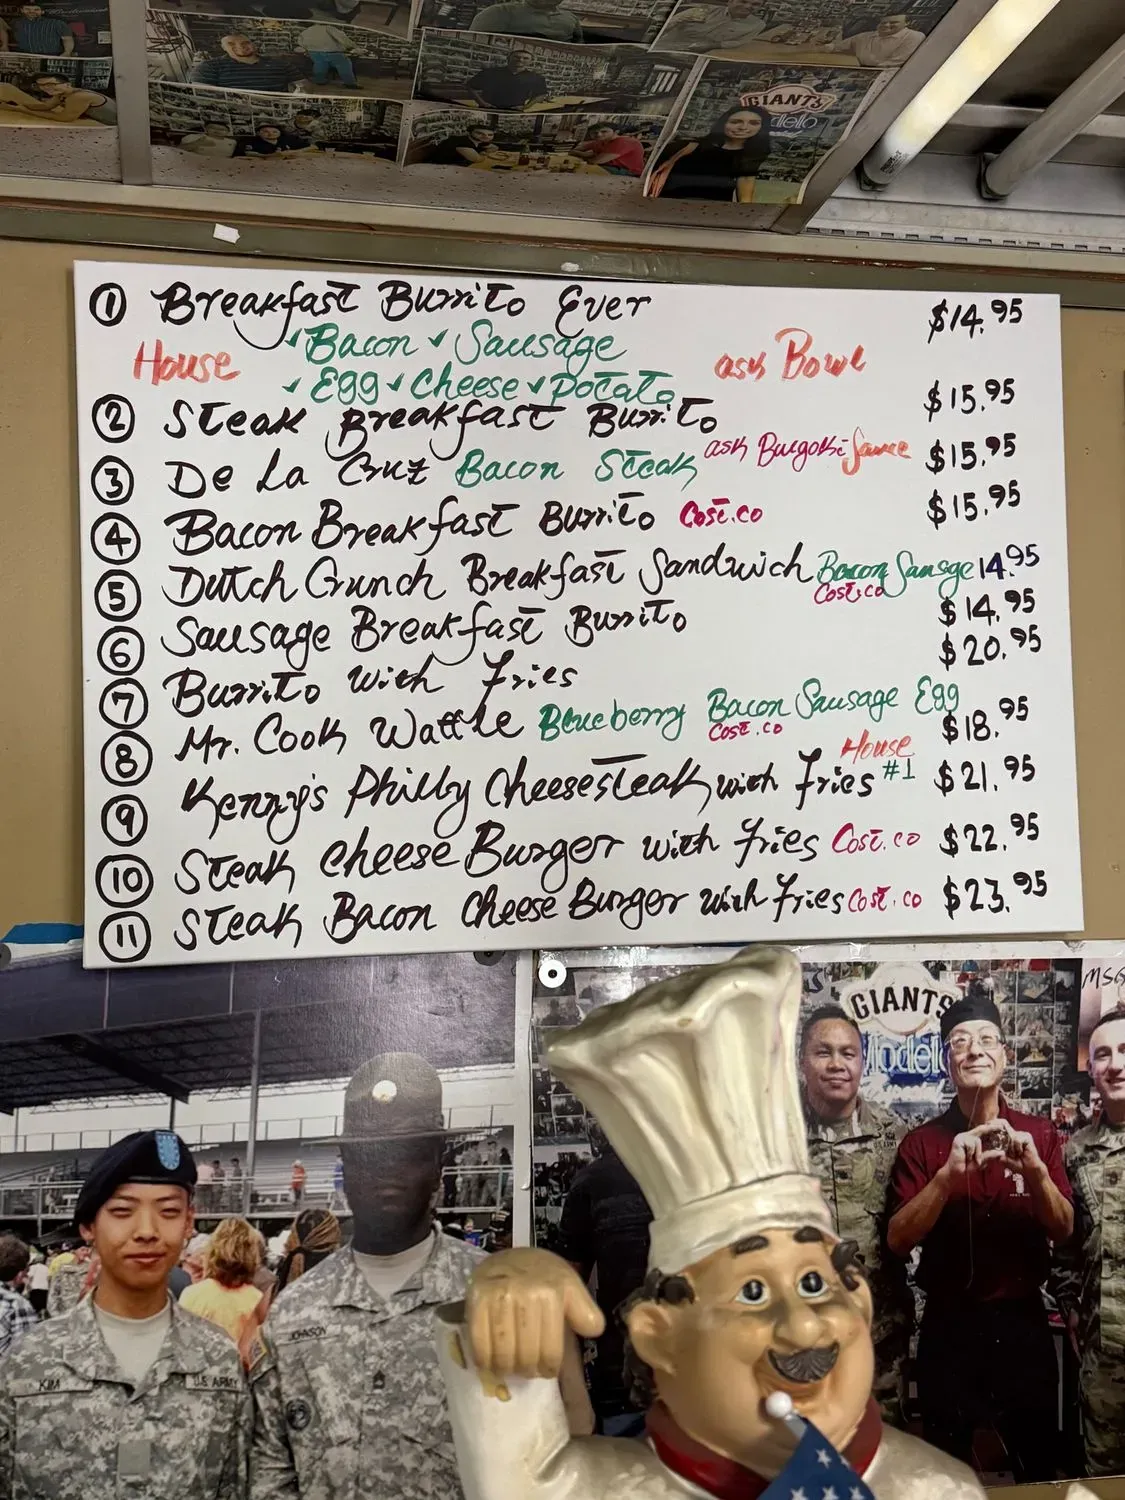 GIANTS
① Breakfast Burrito Ever $14.95
✓Bacon ✓Sausage
House ask Bowl
✓Egg ✓Cheese ✓Potato
② Steak Breakfast Burrito $15.95
③ De La Cruz Bacon Steak ask Bulgoki Sauce $15.95
④ Bacon Breakfast Burrito Cost.co $15.95
⑤ Dutch Crunch Breakfast Sandwich Bacon Sausage 14.95
Cost.co
⑥ Sausage Breakfast Burrito $14.95
⑦ Burrito with Fries $20.95
⑧ Mr. Cook Waffle Blueberry Bacon Sausage Egg $18.95
Cost.co
House
⑨ Kenny's Philly Cheesesteak with Fries #1 $21.95
⑩ Steak Cheese Burger with Fries Cost.co $22.95
⑪ Steak Bacon Cheese Burger with Fries Cost.co $23.95
GIANTS
Modelo
KIM
U.S. ARMY
JOHNSON